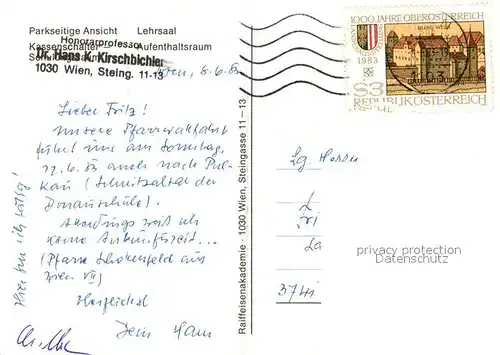 Parkseitige Ansicht Lehrsaal
Kassenschalter Aufenthaltsraum
Honorarprofessor
Dr. Hans K. Kirschbichler
1030 Wien, Steing. 11-13
Wien, 8.6.83
Lieber Fritz!
Unsere Pfarrwallfahrt
führt uns am Sonntag,
12.6.83 auch nach Pul-
kau (Schnitzaltar der
Donauschule).
Allerdings weiß ich
keine Ankunftszeit...
(Pfarre Schottenfeld aus
Wien VII)
Herzlichst
Dein Hans
Raiffeisenakademie · 1030 Wien, Steingasse 11–13
1000 JAHRE OBERÖSTERREICH
BURG WELS
1983
S3
REPUBLIK ÖSTERREICH
Lg. Herrn
Fri
La
privacy protection
Datenschutz
3741